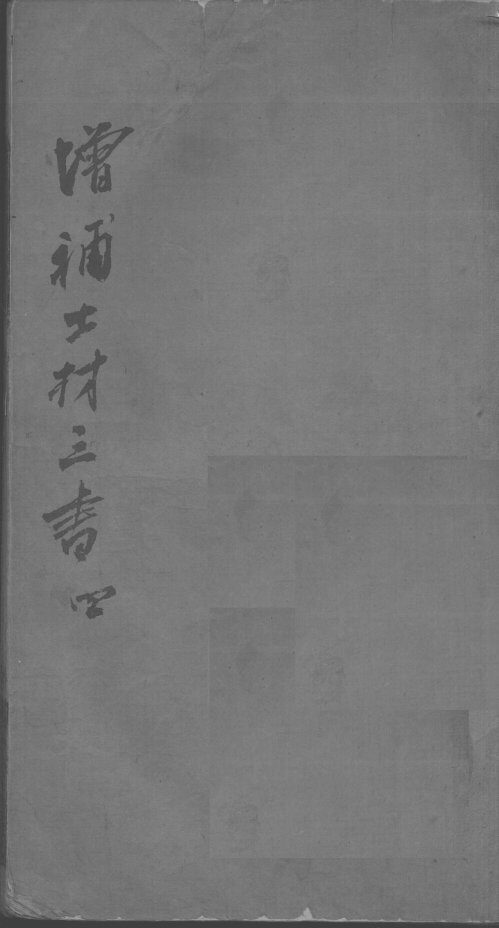 增補士材三書四